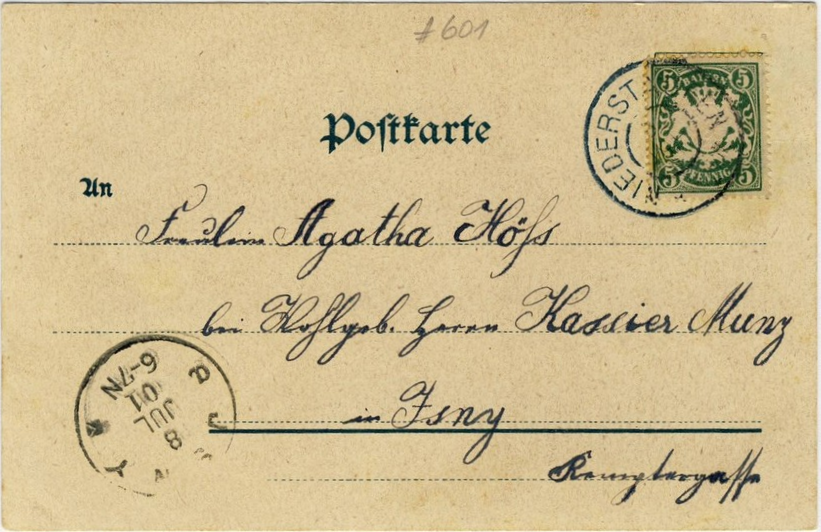 #601
Postkarte
5 BAYERN 5
5 PFENNIG 5
An
Fräulein Agatha Höss
bei Wohlgeb. Herrn Kassier Munz
in Isny
Kemptergasse
6-7N
01
JUL
8